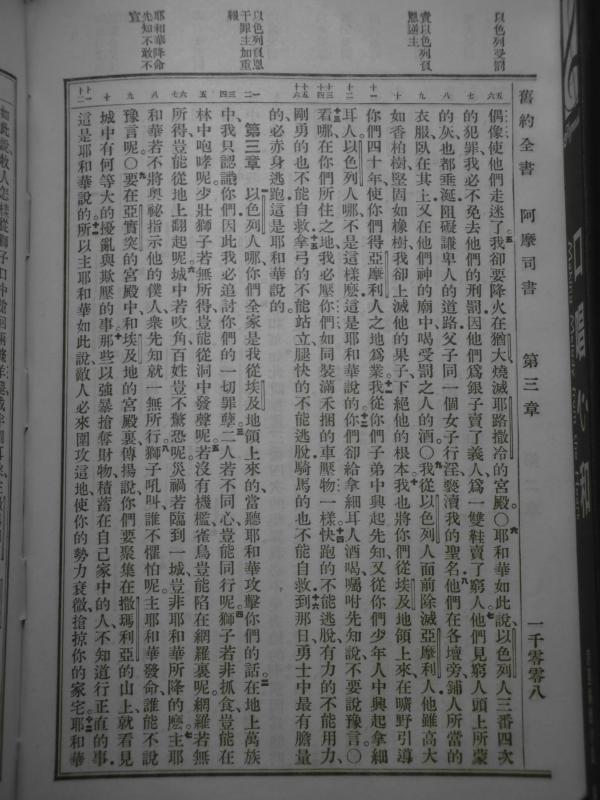 舊約全書 阿摩司書 第三章 一千零零八
以色列受罰
責以色列負
以色列負恩
干罪主加重
報
耶和華降命
先知不敢不
宣
偶像使他們走迷了我卻要降火在猶大燒滅耶路撒冷的宮殿〇耶和華如此說以色列人三番四次
的犯罪我必不免去他們的刑罰因他們爲銀子賣了義人爲一雙鞋賣了窮人他們見窮人頭上所蒙
的灰也都垂涎阻礙謙卑人的道路父子同一個女子行淫褻瀆我的聖名他們在各壇旁鋪人所當的
衣服臥在其上又在他們神的廟中喝受罰之人的酒〇我從以色列人面前除滅亞摩利人他雖高大
如香柏樹堅固如橡樹我卻上滅他的果子下絕他的根本我也將你們從埃及地領上來在曠野引導
你們四十年使你們得亞摩利人之地爲業我從你們子弟中興起先知又從你們少年人中興起拿細
耳人以色列人哪不是這樣麽這是耶和華說的你們卻給拿細耳人酒喝囑咐先知說不要說豫言〇
看哪在你們所住之地我必壓你們如同裝滿禾捆的車壓物一樣快跑的不能逃脫有力的不能用力
剛勇的也不能自救拿弓的不能站立腿快的不能逃脫騎馬的也不能自救到那日勇士中最有膽量
的必赤身逃跑這是耶和華說的
第三章 以色列人哪你們全家是我從埃及地領上來的當聽耶和華攻擊你們的話在地上萬族
中我只認識你們因此我必追討你們的一切罪孽二人若不同心豈能同行呢獅子若非抓食豈能在
林中咆哮呢少壯獅子若無所得豈能從洞中發聲呢若沒有機檻雀鳥豈能陷在網羅裏呢網羅若無
所得豈能從地上翻起呢城中若吹角百姓豈不驚恐呢災禍若臨到一城豈非耶和華所降的麽主耶
和華若不將奧祕指示他的僕人衆先知就一無所行獅子吼叫誰不懼怕呢主耶和華發命誰能不說
豫言呢〇要在亞實突的宮殿中和埃及地的宮殿裏傳揚說你們要聚集在撒瑪利亞的山上就看見
城中有何等大的擾亂與欺壓的事那些以強暴搶奪財物積蓄在自己家中的人不知道行正直的事
這是耶和華說的所以主耶和華如此說敵人必來圍攻這地使你的勢力衰微搶掠你的家宅耶和華